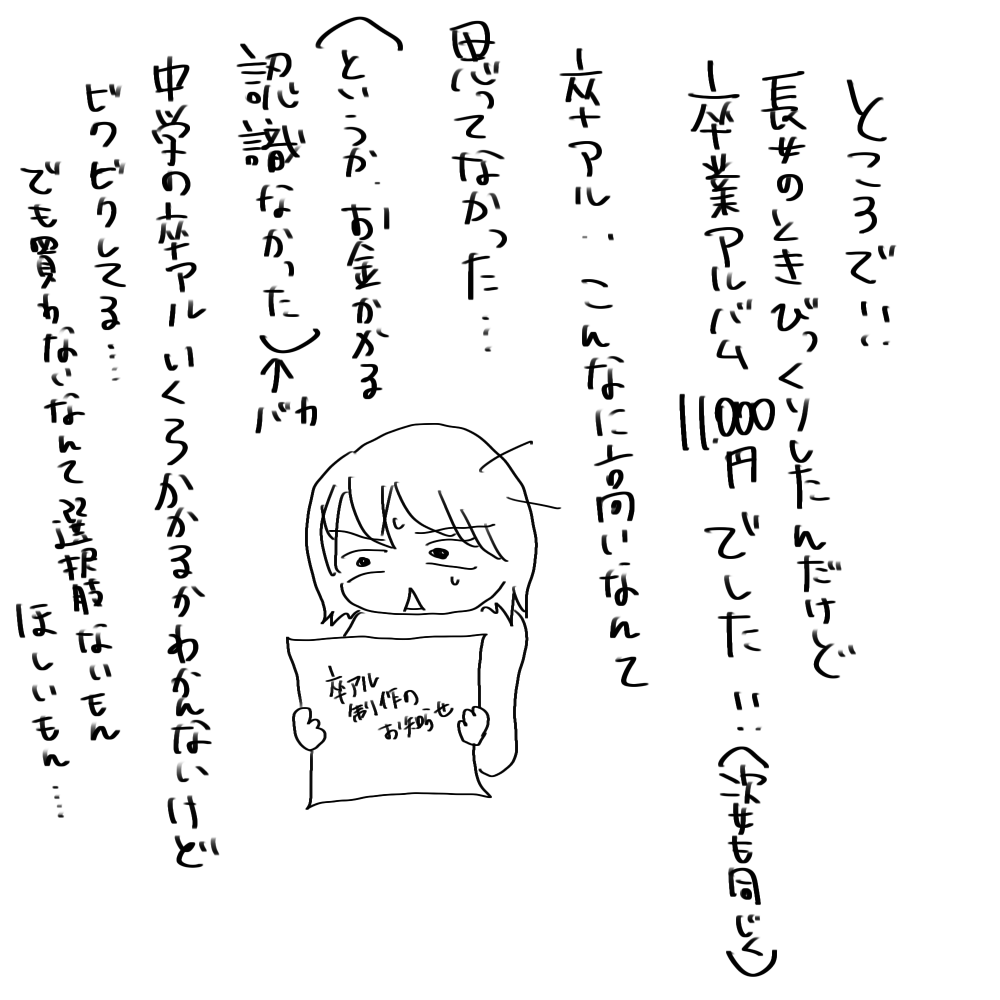 ところで‥
長女のときびっくりしたんだけど
卒業アルバム 11.000円でした‥(次女も同じく)
卒アル‥こんなに高いなんて
思ってなかった…
(というか‥お金かかる
認識なかった)←バカ
中学の卒アルいくらかかるかわかんないけど
ビクビクしてる……
でも買わないなんて選択肢ないもん
ほしいもん……
卒アル
制作の
お知らせ